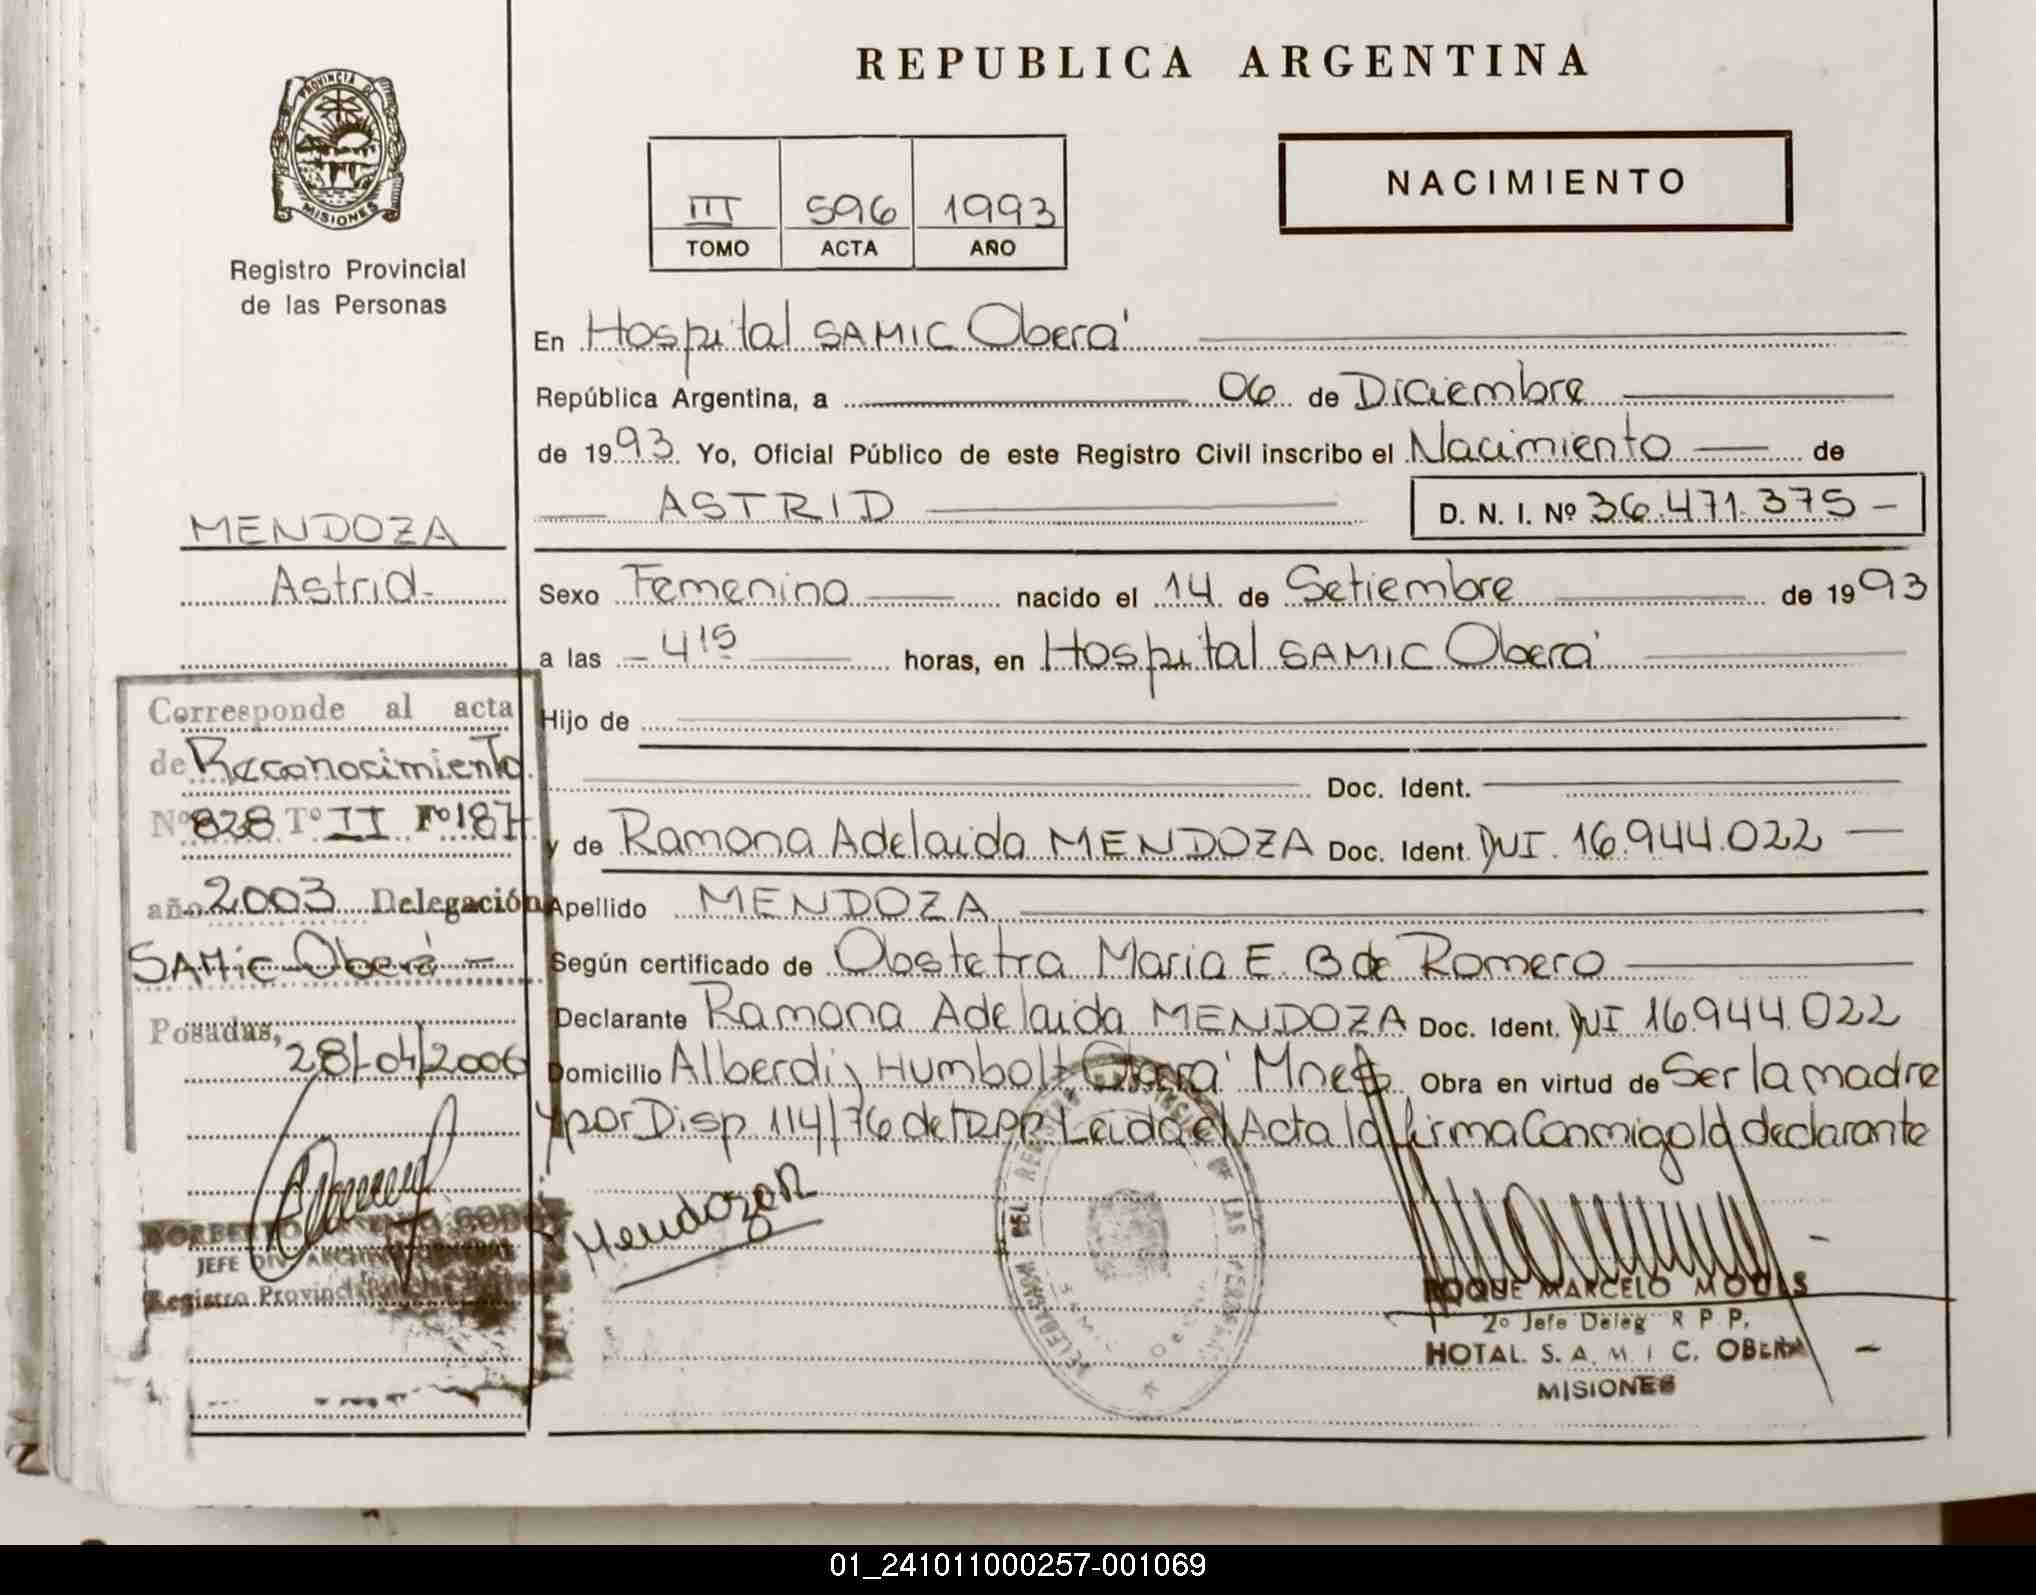 PROVINCIA DE
MISIONES
Registro Provincial
de las Personas
MENDOZA
Astrid-
Corresponde al acta
de Reconocimiento
Nº 828 Tº II Fº 187
año 2003 Delegación
SAMic Oberá -
Posadas,
28/04/2006
JEFE DIV. ARCHIVO GENERAL
Registro Provincial
REPUBLICA ARGENTINA
NACIMIENTO
III 596 1993
TOMO ACTA AÑO
En Hospital SAMIC Oberá
República Argentina, a 06 de Diciembre
de 1993 Yo, Oficial Público de este Registro Civil inscribo el Nacimiento — de
ASTRID D. N. I. Nº 36.471.375 -
Sexo Femenino nacido el 14 de Setiembre de 1993
a las - 4 15 horas, en Hospital SAMIC Oberá
Hijo de
Doc. Ident.
y de Ramona Adelaida MENDOZA Doc. Ident. DNI. 16.944.022 —
Apellido MENDOZA
Según certificado de Obstetra Maria E. B de Romero
Declarante Ramona Adelaida MENDOZA Doc. Ident. DNI 16.944.022
Domicilio Alberdi y Humbolt Oberá Mnes Obra en virtud de Ser la madre
y por Disp 114/76 del RPP Leida el Acta la firma Conmigo la declarante
Mendoza R
ROQUE MARCELO
2º Jefe Deleg R P P.
HOTAL. S. A. M. I C. OBERA
MISIONES
01_241011000257-001069